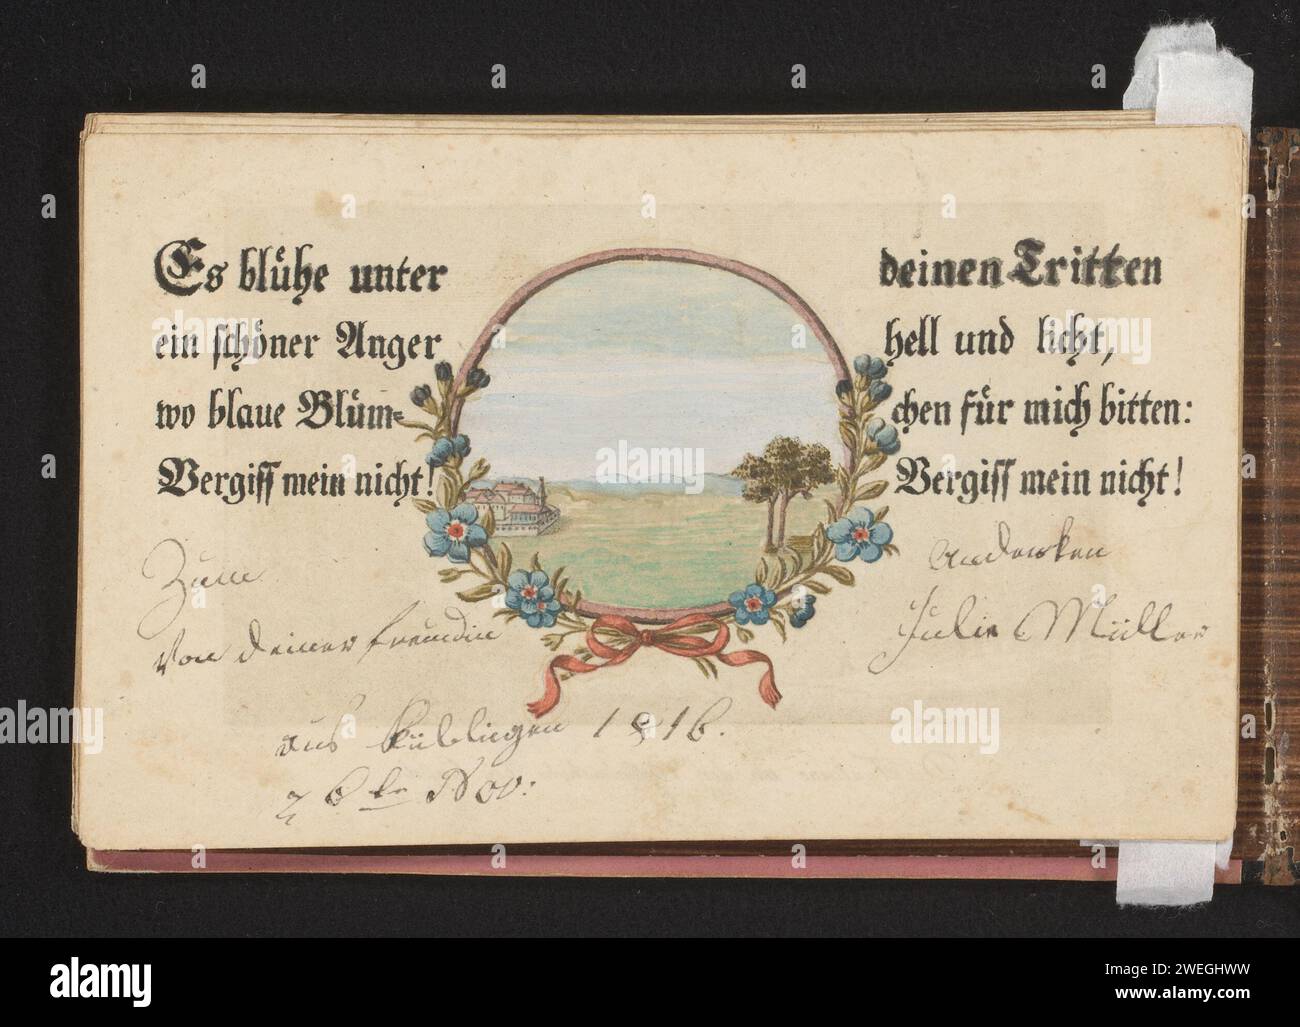 Es blühe unter deinen Tritten
ein schöner Anger hell und licht,
wo blaue Blüm= chen für mich bitten:
Vergiss mein nicht! Vergiss mein nicht!
Zum Andenken
Von deiner freundin Julie Müller
aus 1816.
26te Nov:
alamy
Image ID: 2WEGHWW
www.alamy.com